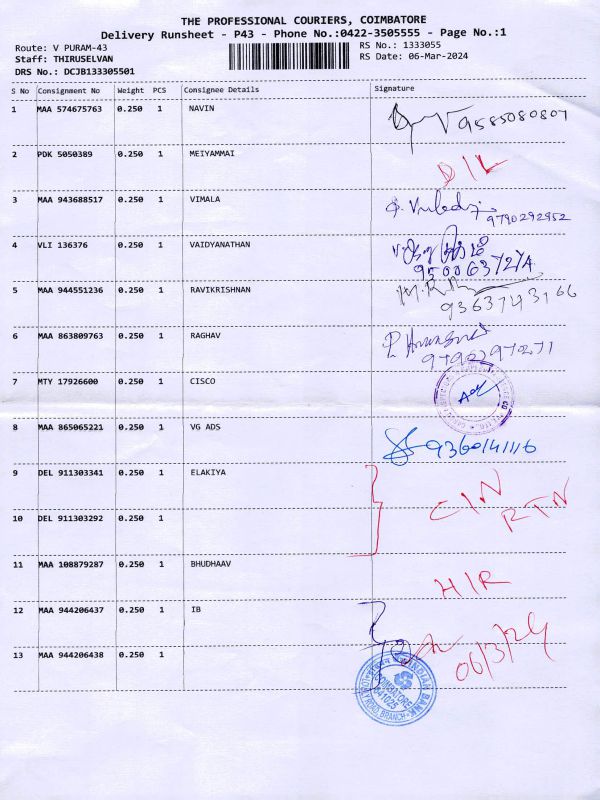 THE PROFESSIONAL COURIERS, COIMBATORE
Delivery Runsheet - P43 - Phone No.:0422-3505555 - Page No.:1
Route: V PURAM-43
RS No.: 1333055
Staff: THIRUSELVAN
RS Date: 06-Mar-2024
DRS No.: DCJB133305501
S No Consignment No Weight PCS Consignee Details Signature
1 MAA 574675763 0.250 1 NAVIN
9585080807
2 PDK 5050389 0.250 1 MEIYAMMAI
D/L
3 MAA 943688517 0.250 1 VIMALA
9790292952
4 VLI 136376 0.250 1 VAIDYANATHAN
5 MAA 944551236 0.250 1 RAVIKRISHNAN
9363743166
6 MAA 863809763 0.250 1 RAGHAV
7 MTY 17926600 0.250 1 CISCO
8 MAA 865065221 0.250 1 VG ADS
9360141116
9 DEL 911303341 0.250 1 ELAKIYA
C/N
RTN
10 DEL 911303292 0.250 1
11 MAA 108879287 0.250 1 BHUDHAAV
H/R
12 MAA 944206437 0.250 1 IB
06/3/24
13 MAA 944206438 0.250 1
INDIAN BANK
COIMBATORE
641025